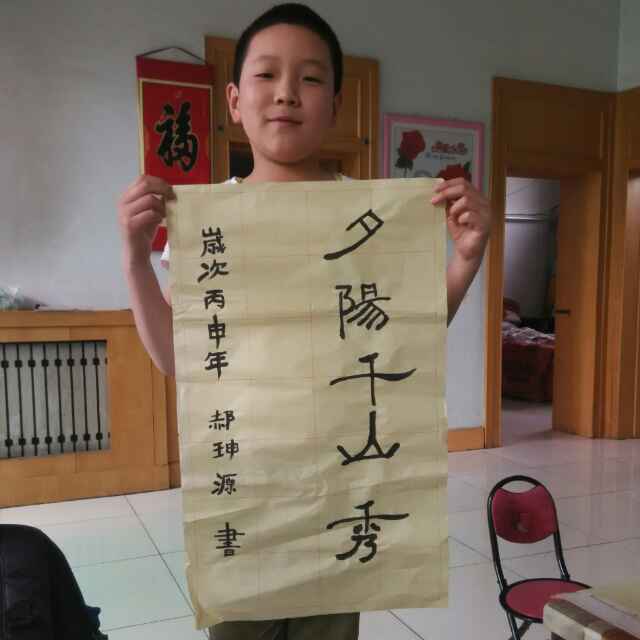 夕陽千山秀
歲次丙申年 郝珅源 書
福